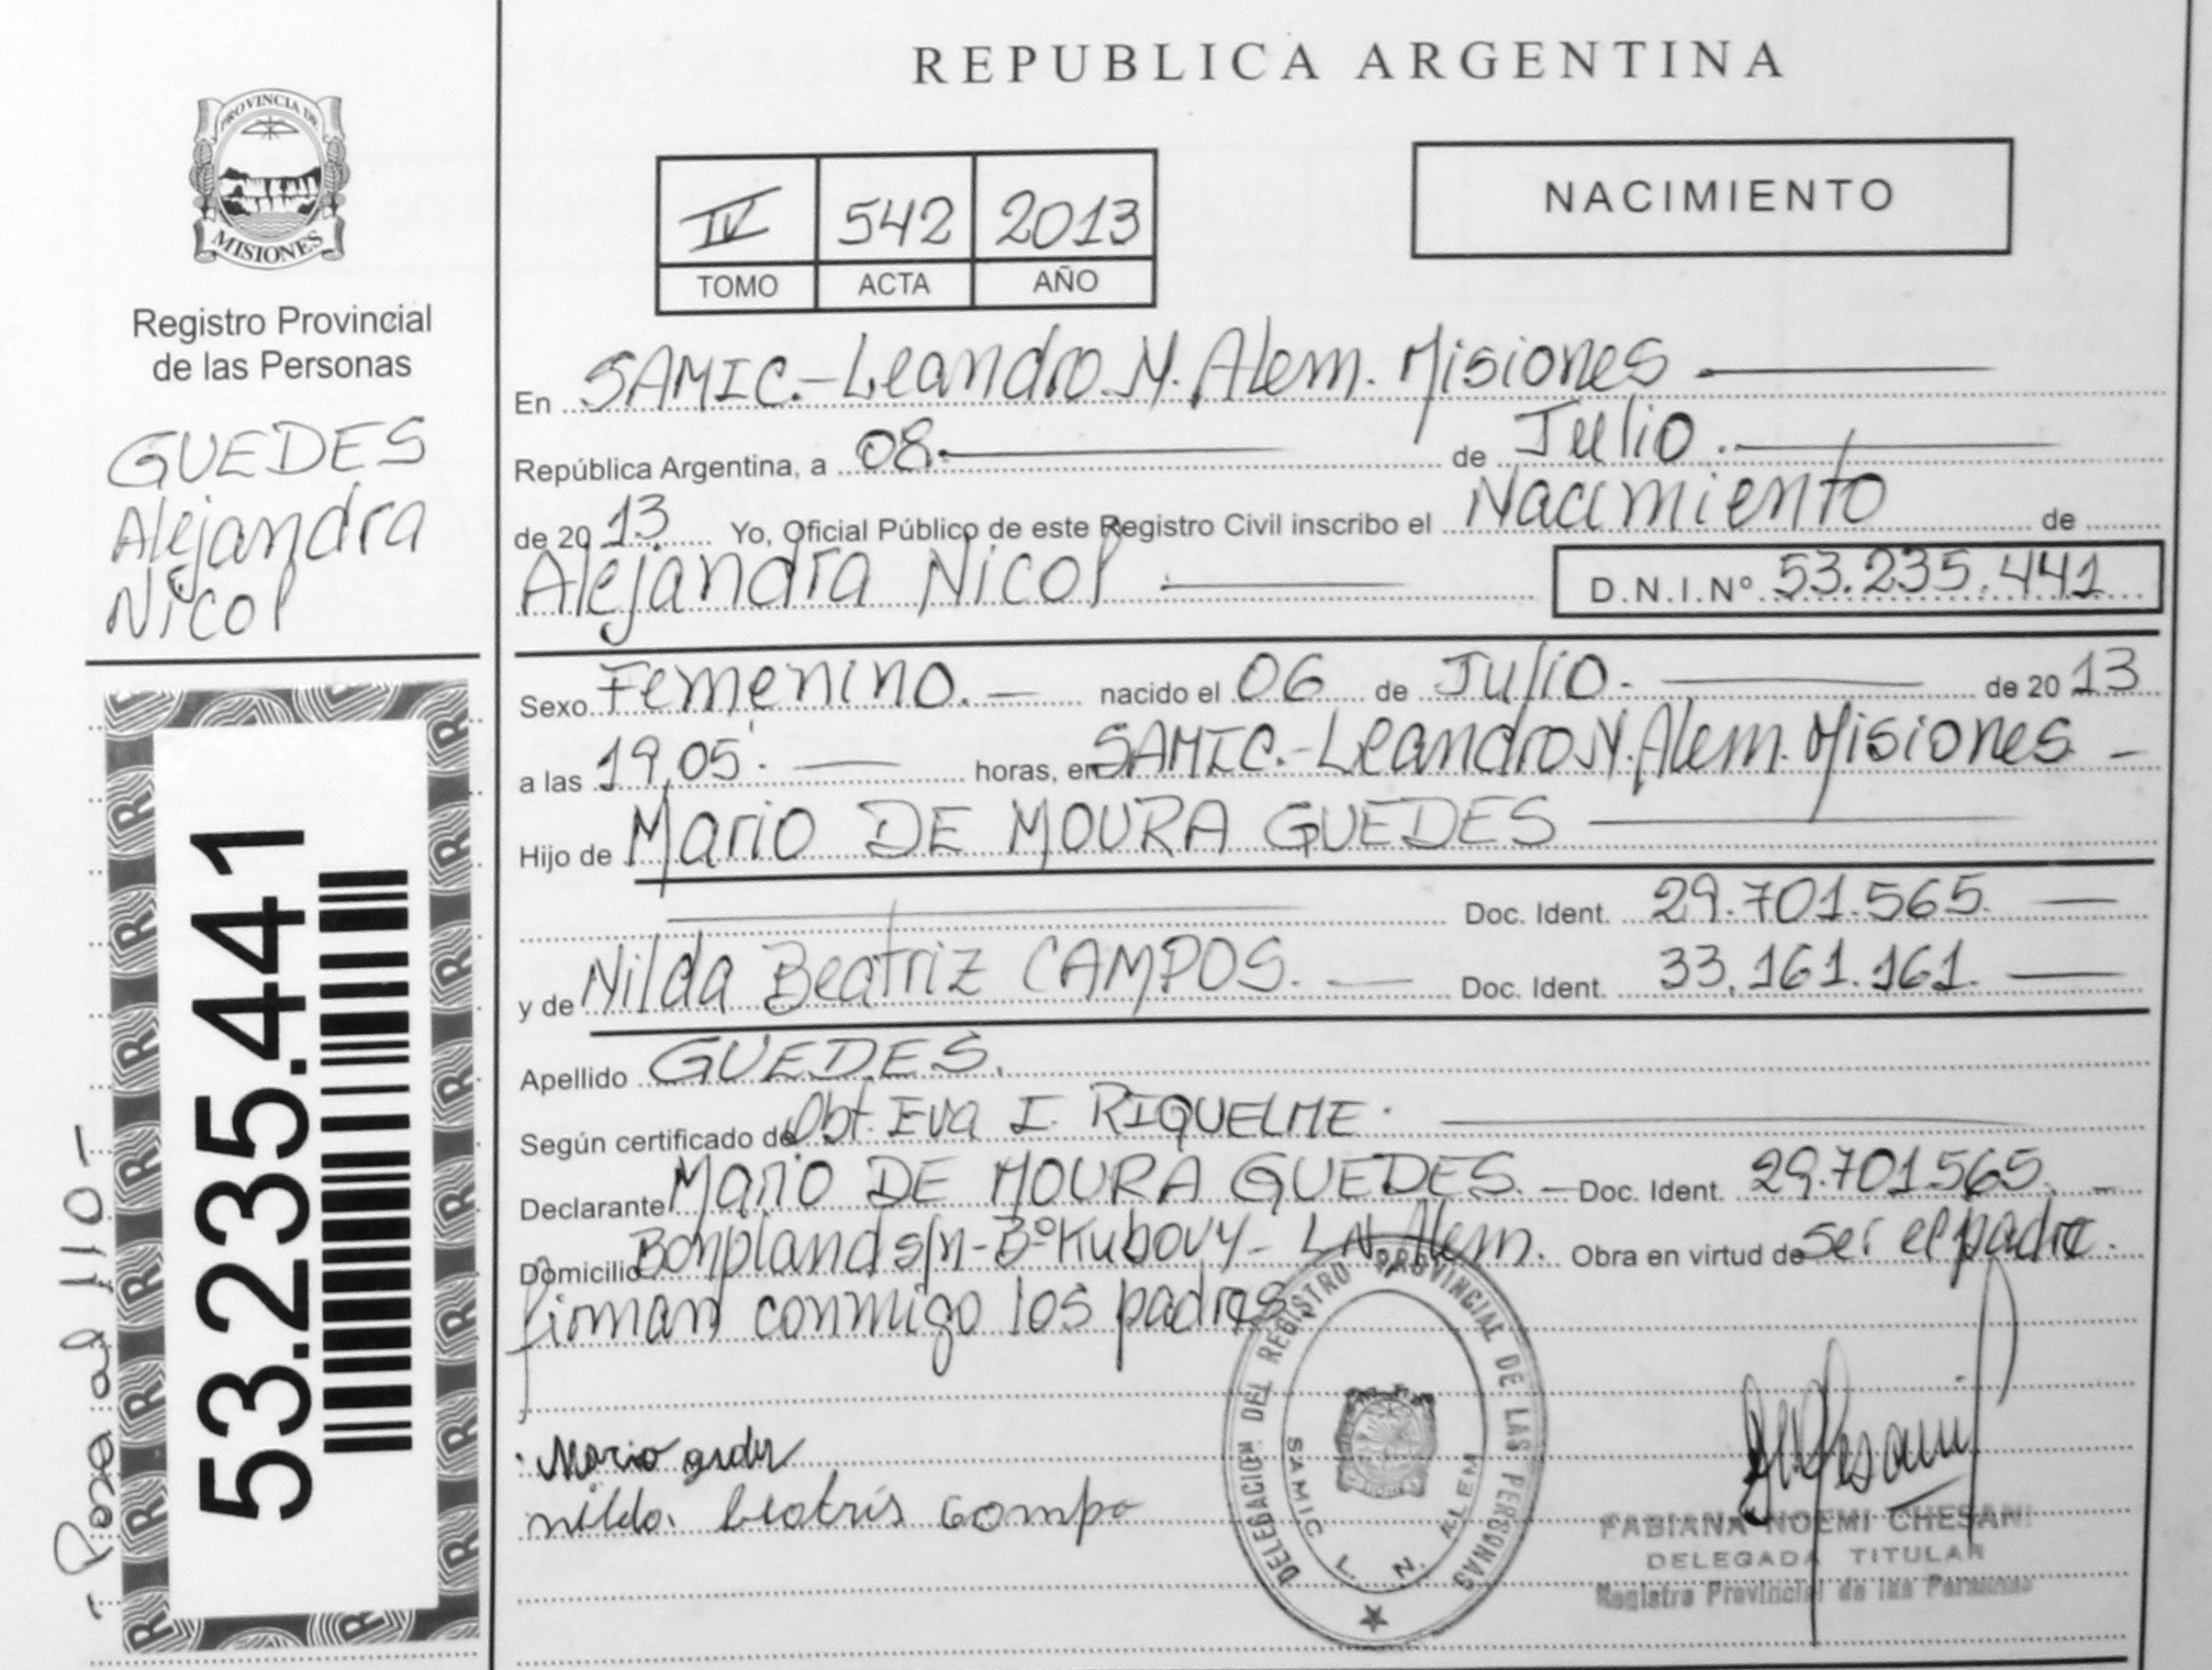 REPUBLICA ARGENTINA
PROVINCIA DE
MISIONES
Registro Provincial
de las Personas
GUEDES
Alejandra
Nicol
53.235.441
- Pasa al 110 -
IV 542 2013
TOMO ACTA AÑO
NACIMIENTO
En SAMIC.-Leandro.N.Alem.Misiones
República Argentina, a 08. de Julio.
de 2013 Yo, Oficial Público de este Registro Civil inscribo el Nacimiento de
Alejandra Nicol D.N.I.Nº 53.235.441
Sexo Femenino. nacido el 06 de Julio. de 2013
a las 19,05'. horas, en SAMIC.-Leandro N.Alem.Misiones
Hijo de Mario DE MOURA GUEDES
Doc. Ident. 29.701.565.
y de Nilda Beatriz CAMPOS. Doc. Ident. 33.161.161.
Apellido GUEDES.
Según certificado de Obt. Eva I. RIQUELME.
Declarante Mario DE MOURA GUEDES. Doc. Ident. 29.701.565.
Domicilio Bonpland s/n-Bº Kubovy- L N Alem. Obra en virtud de ser el padre.
firman conmigo los padres.
Mario
nilda beatris
DELEGACION DEL REGISTRO PROVINCIAL DE LAS PERSONAS
SAMIC L. N. ALEM
FABIANA NOEMI CHESANI
DELEGADA TITULAR
Registro Provincial de las Personas